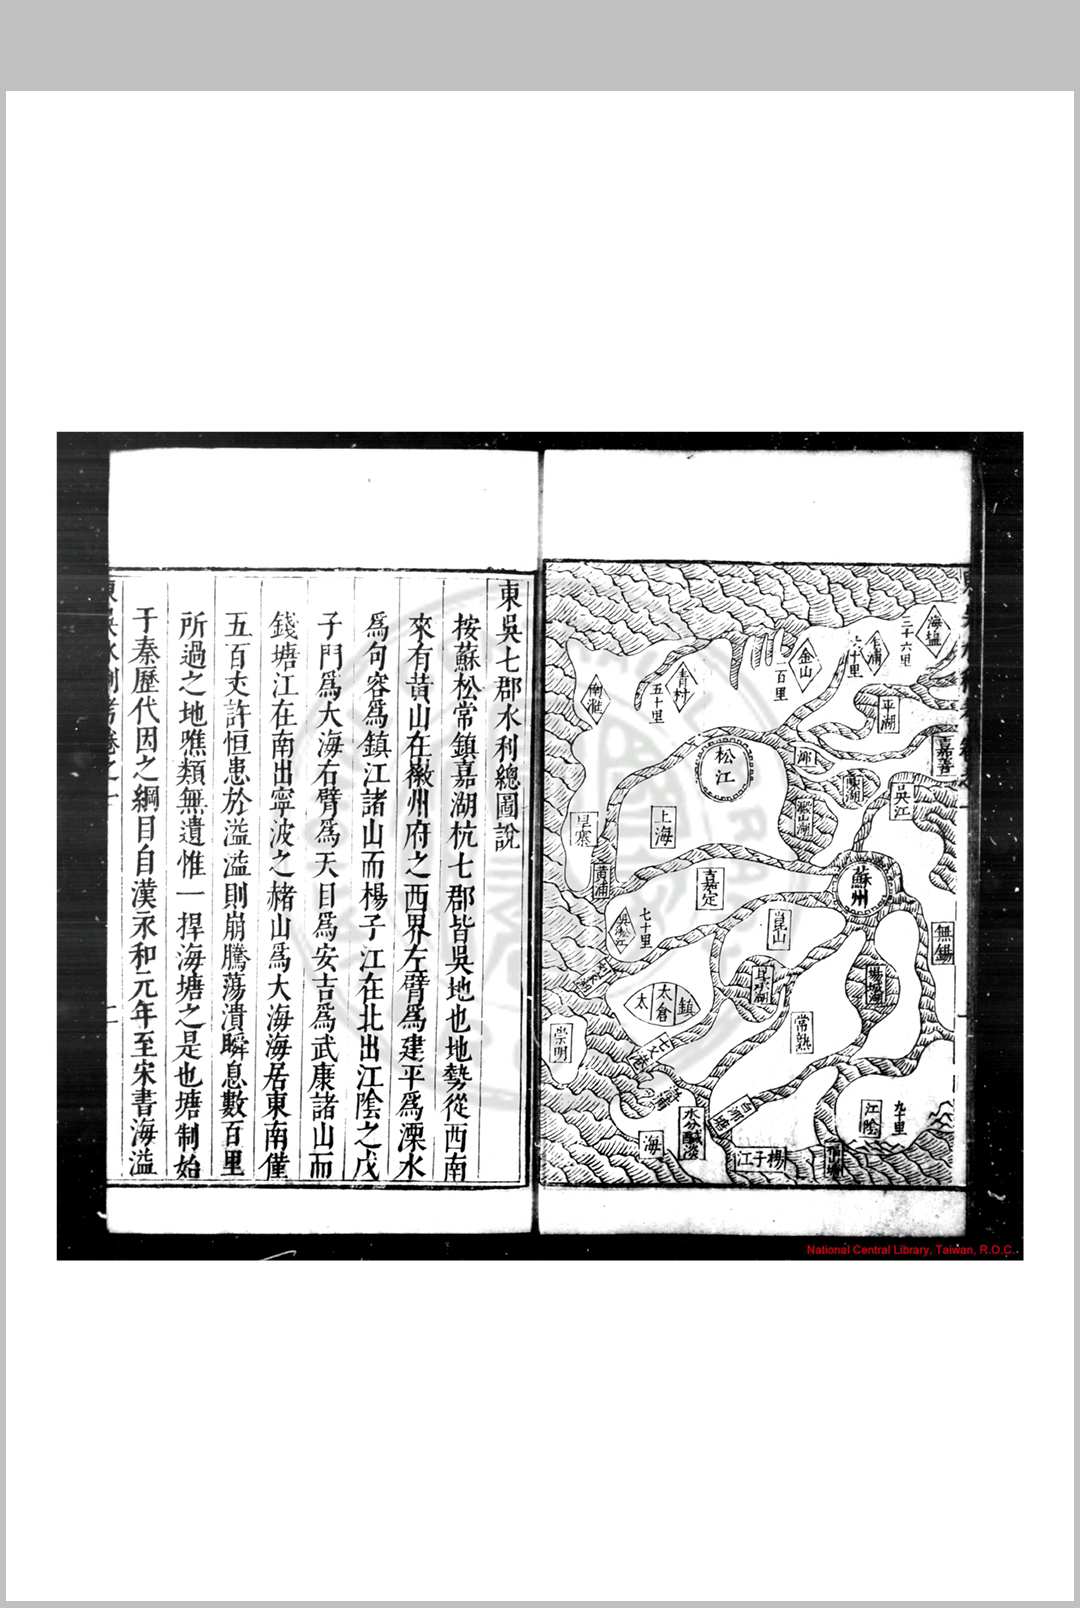 海塩
三十六里
乍浦
六十里
金山
一百里
青村
五十里
平湖
嘉善
松江
泖
吳江
上海
黃浦
嘉定
蘇州
無錫
崑山
七十里
吳淞江
太倉
鎮
太
崇明
常熟
江陰
九十里
白茆塘
海
水分鹹淡
楊子江
東吳七郡水利總圖說
按蘇松常鎮嘉湖杭七郡皆吳地也地勢從西南
來有黄山在徽州府之西界左臂爲建平爲溧水
爲句容爲鎮江諸山而楊子江在北出江陰之戊
子門爲大海右臂爲天目爲安吉爲武康諸山而
錢塘江在南出寧波之赭山爲大海海居東南僅
五百丈許恒患於溢溢則崩騰蕩潰瞬息數百里
所過之地噍類無遺惟一捍海塘之是也塘制始
于秦歷代因之綱目自漢永和元年至宋書海溢
東吳水利考卷之一
二
National Central Library, Taiwan, R.O.C.